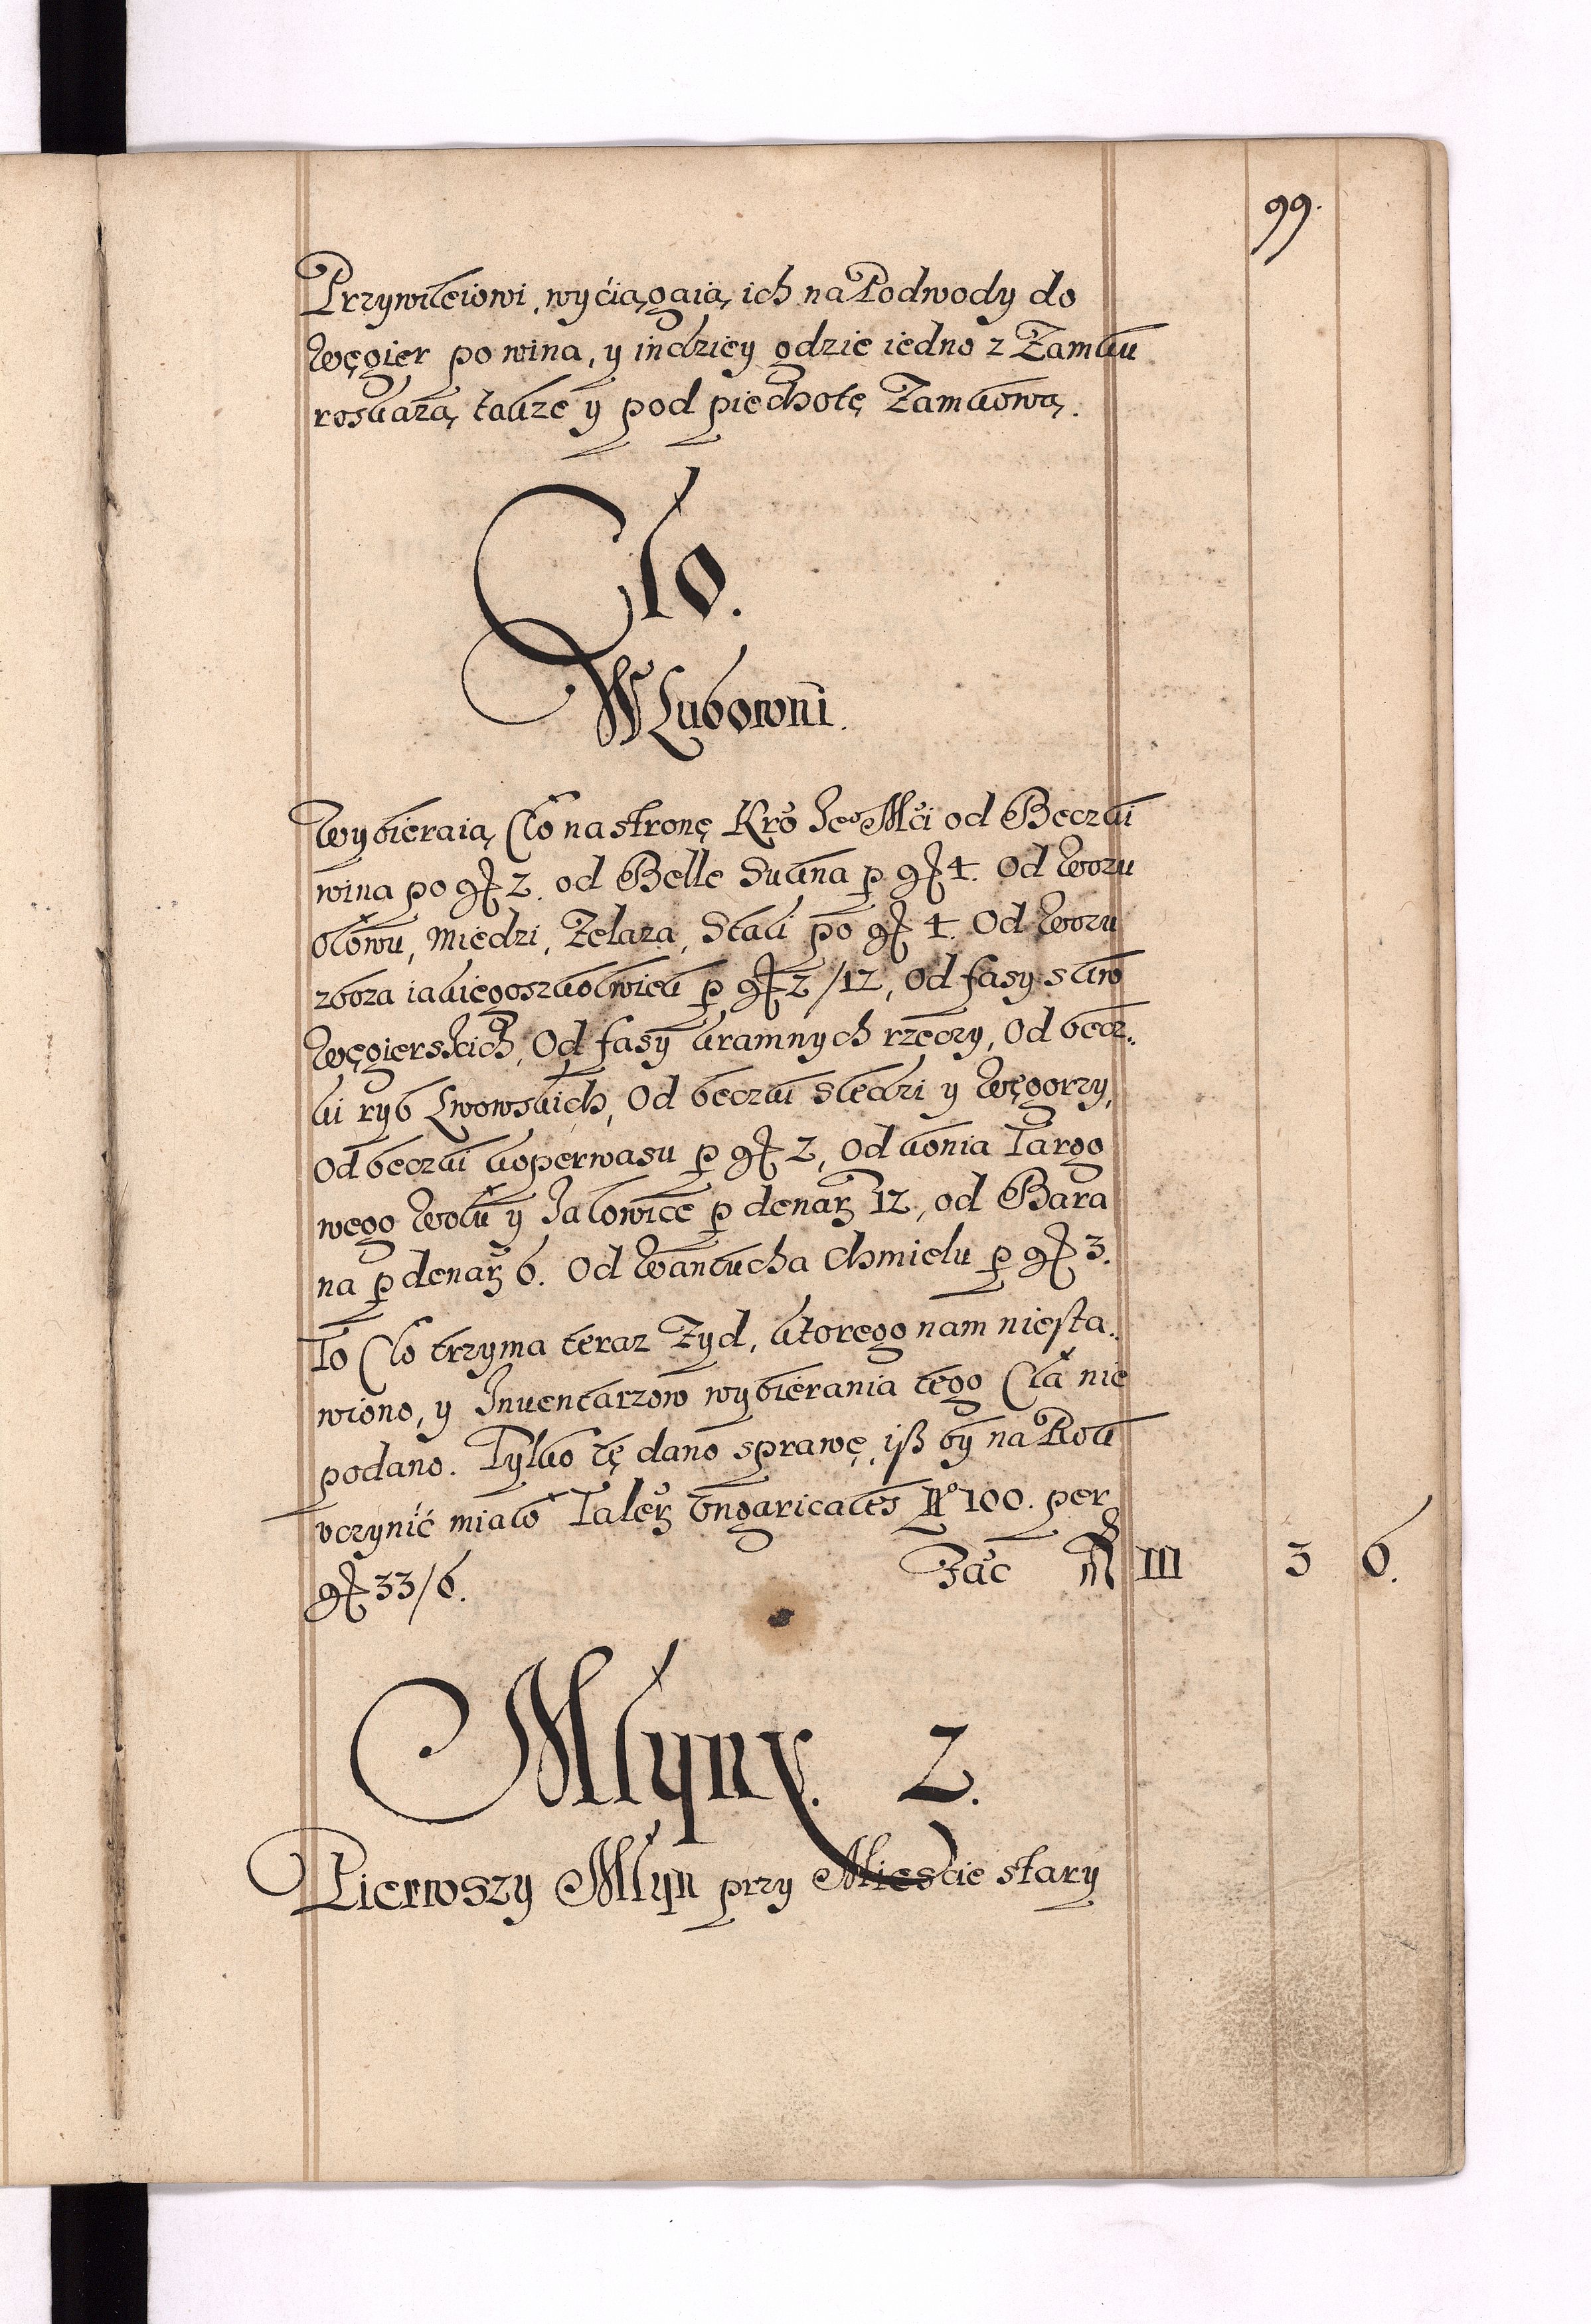 99.
Przywileiowi, wyciągaią ich na Podwody do
Węgier po wina, y indziey gdzie iedno z Zamku
roskażą, także y pod piechotę Zamkową.
Cło.
W Lubowni.
Wybieraią Cło na stronę Kro Jeo Mci od Beczki
wina po gr 2. od Belle Sukna p gr 4. Od Wozu
Ołowu, Miedzi, Żelaza, Stali po gr 4. Od Wozu
zboża iakiegoszkolwiek p gr 2/12, Od fasy sliw
Węgierskich, Od fasy kramnych rzeczy, Od becz.
ki ryb Lwowskich, Od beczki śledzi y Węgorzy,
Od beczki koperwasu p gr 2, Od konia Targo
wego Wołu y Jałowice p denar 12, od Bara
na p denar 6. Od Wańtucha Chmielu p gr 3.
To Cło trzyma teraz Żyd, ktorego nam niesta.
wiono, y Inuentarzow wybierania tego Cła nie
podano. Tylko tę dano sprawę, iß by na Rok
vczynić miało Taler Vngaricales No 100. per
gr 33/6. Fac III 3 6.
Młyny. 2.
Pierwszy Młyn przy Mieście stary